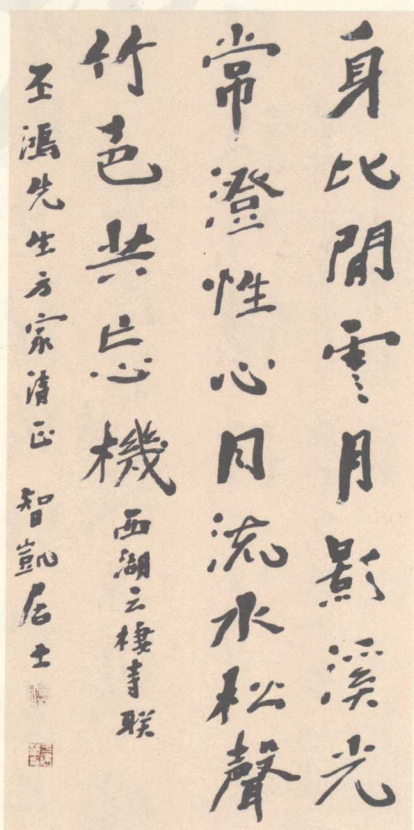 身比閒雲月影溪光
常澄性心同流水松聲
竹色共忘機 西湖云棲寺联
丕鴻先生方家清正 智凱居士